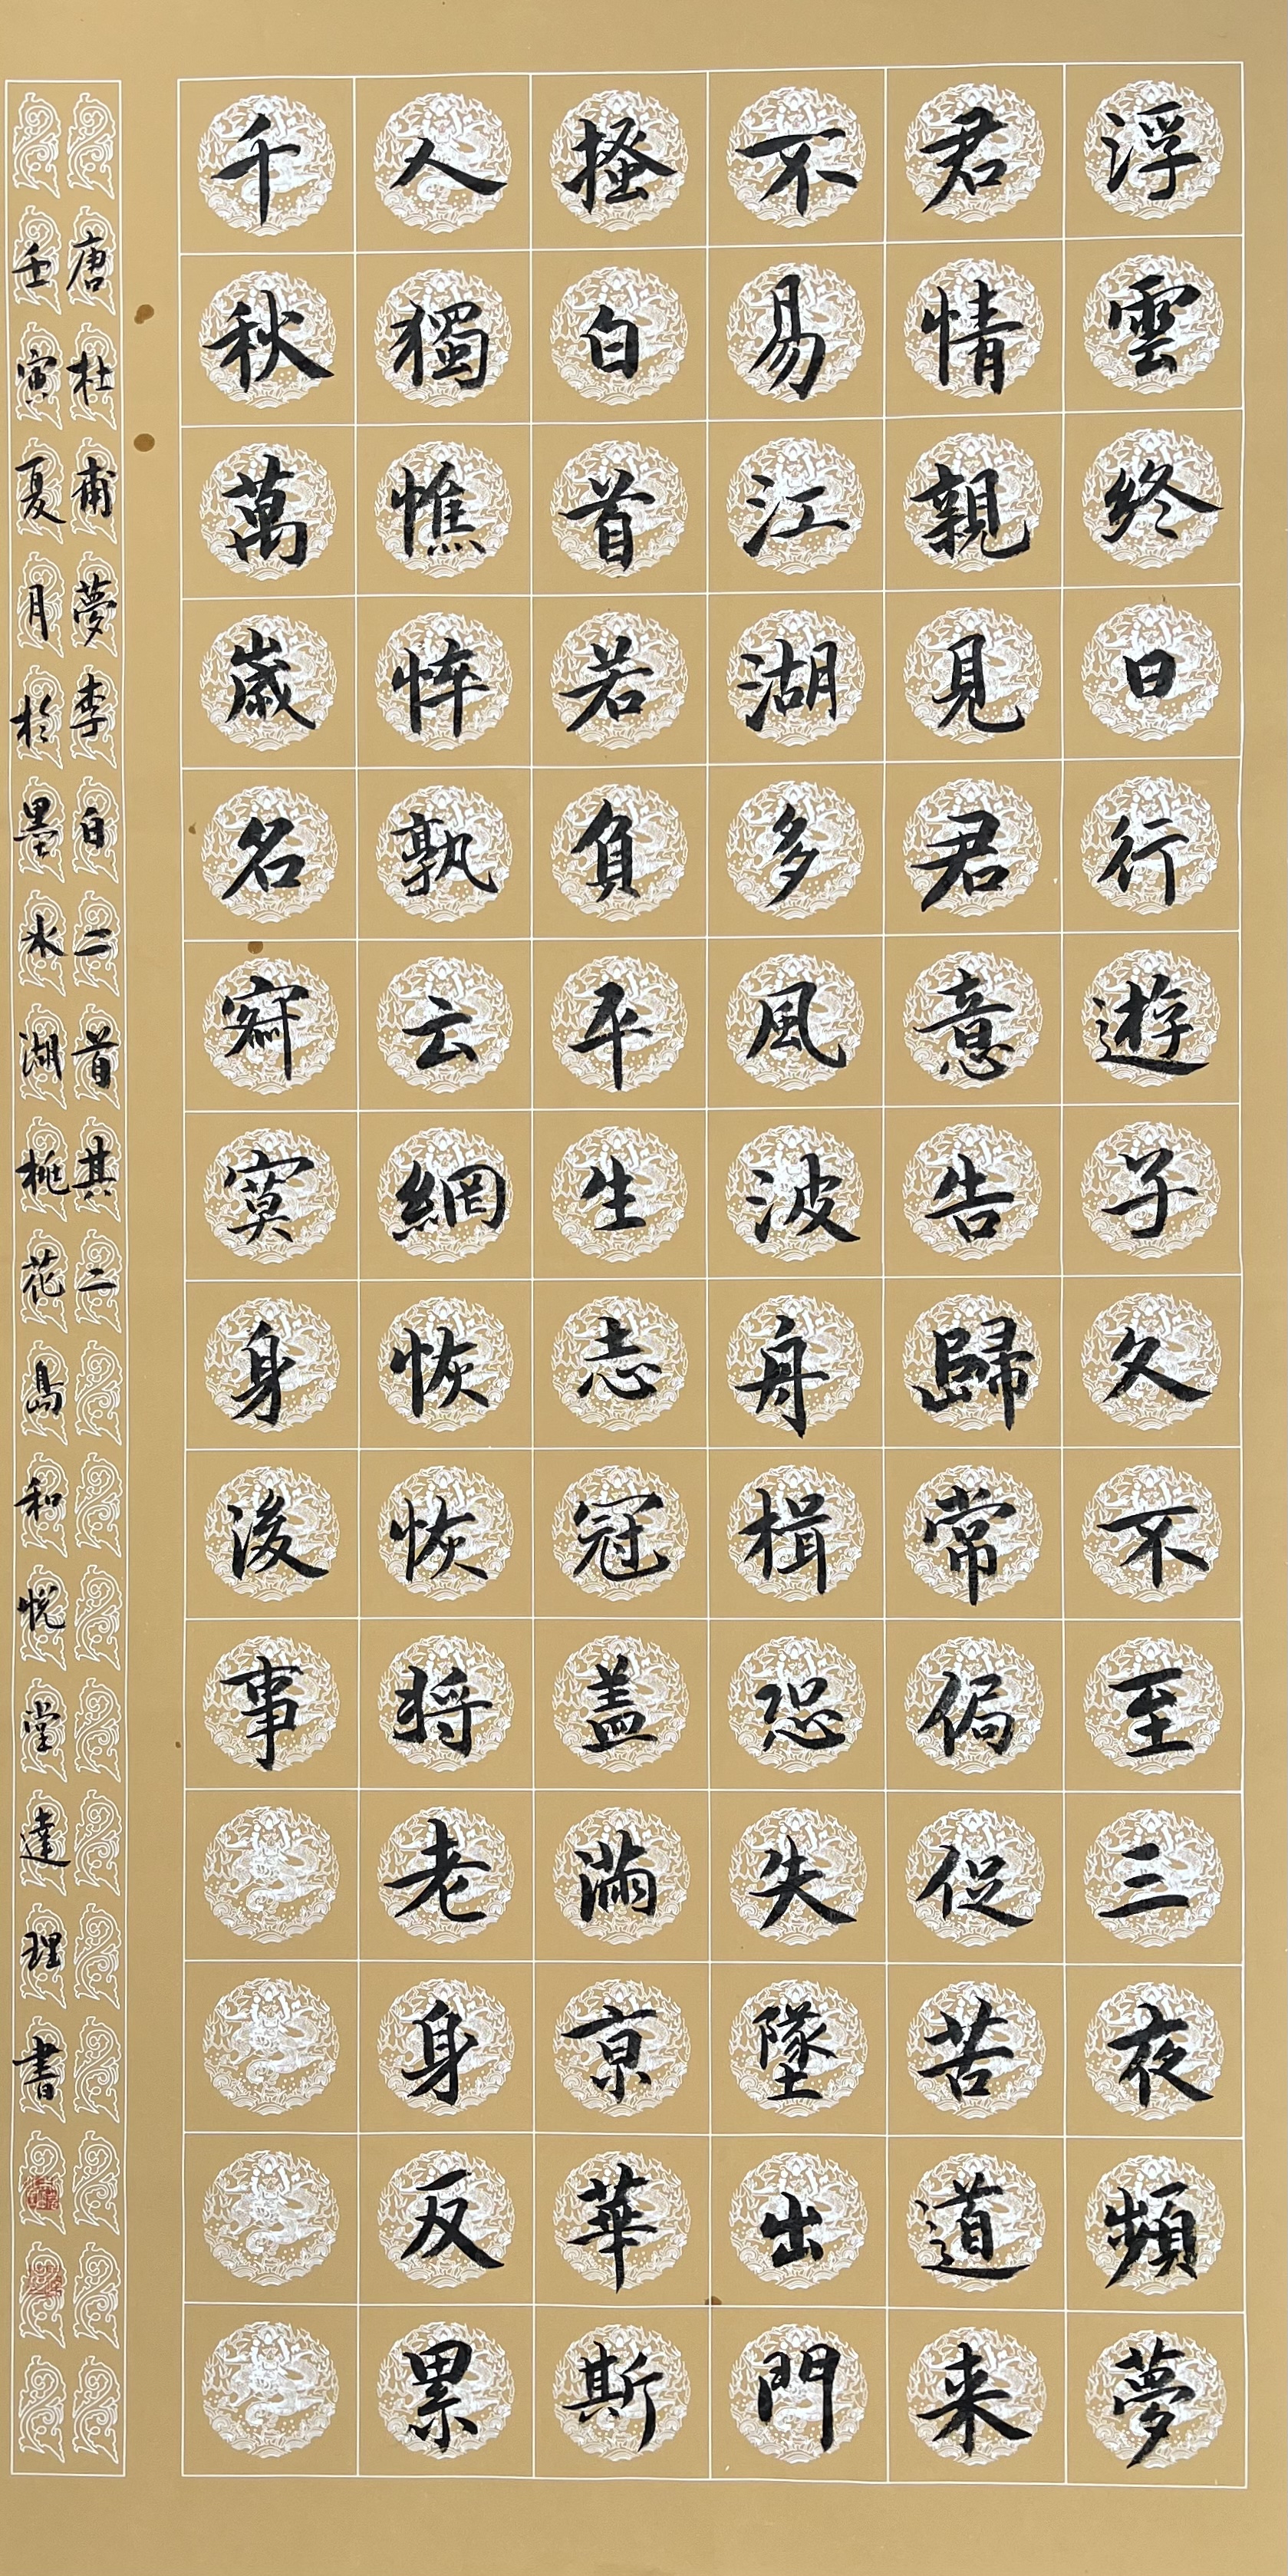 浮雲終日行遊子久不至三夜頻夢
君情親見君意告歸常侷促苦道来
不易江湖多風波舟楫恐失墜出門
搔白首若負平生志冠盖滿京華斯
人獨憔悴孰云網恢恢将老身反累
千秋萬歲名寂寞身後事
唐杜甫夢李白二首其二
壬寅夏月於墨水湖桃花島和悦堂達理書